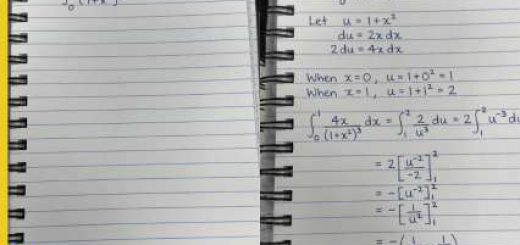 ∫₀ (1+x
Let u = 1+x²
du = 2x dx
2du = 4x dx
When x=0, u=1+0²=1
When x=1, u=1+1²=2
∫₀¹ 4x/(1+x²)³ dx = ∫₁² 2/u³ du = 2∫₁² u⁻³ du
= 2[u⁻²/-2]₁²
= -[u⁻²]₁²
= -[1/u²]₁²
= -(1 1)